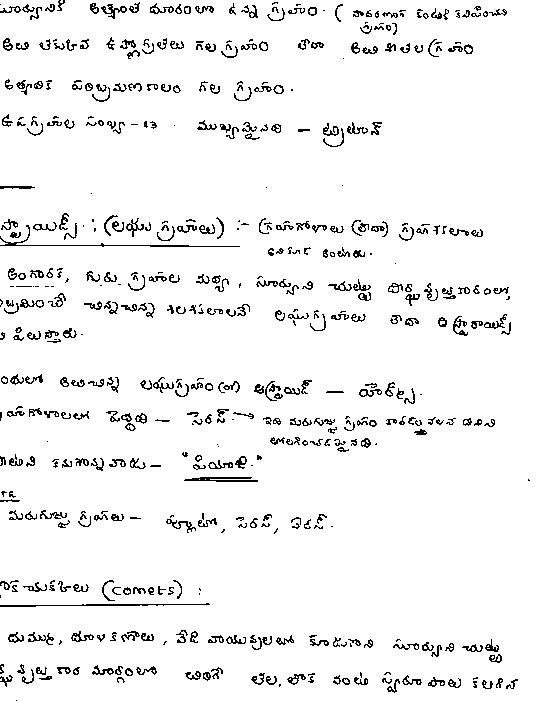 సూర్యునికి అత్యంత దూరంలో ఉన్న గ్రహం. ( సాధారణంగా కంటికి కనిపించని గ్రహం)
అతి తక్కువ ఉష్ణోగ్రతలు గల గ్రహం లేదా అతి శీతల గ్రహం
అత్యధిక పరిభ్రమణకాలం గల గ్రహం.
ఉపగ్రహాల సంఖ్య - 13 . ముఖ్యమైనది - ట్రిటాన్
స్ట్రాయిడ్స్ : (లఘు గ్రహాలు) :- గ్రహగోళాలు (లేదా) గ్రహశకలాలు
అనికూడ అంటారు.
అంగారక, గురు గ్రహాల మధ్య, సూర్యుని చుట్టు దీర్ఘవృత్తాకారంలో,
భ్రమించే చిన్నచిన్న శిలాశకలాలనే లఘుగ్రహాలు లేదా ఆస్ట్రాయిడ్స్
పిలుస్తారు.
అతిచిన్న లఘుగ్రహం (or) ఆస్ట్రాయిడ్ -
గ్రహగోళాలలో పెద్దది - సెరస్ → ఇది మరుగుజ్జు గ్రహం కావడం వలన దీనిని
తొలగించడమైనది.
కనుగొన్నవాడు - "పియాజి."
మరుగుజ్జు గ్రహాలు - ప్లూటో, సెరస్, ఏరిస్.
తోకచుక్కలు (comets) :
దుమ్ము, ధూళికణాలు, వేడి వాయువులతో కూడుకొని సూర్యుని చుట్టు
వృత్తాకార మార్గంలో తిరిగే తల, తోక వంటి స్వరూపాలు కలిగిన